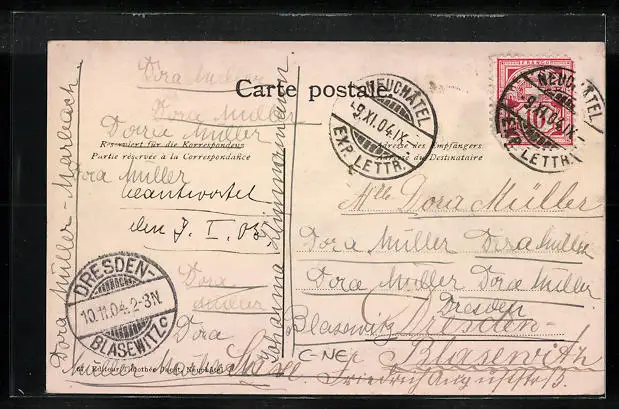 Dora Müller - Marbach
Dora Müller
Carte postale.
Dora Müller
Dorre Müller
Reservirt für die Korrespondenz
Partie réservée à la Correspondance
Dora Müller
beantwortet
den 7. I. 05
Dora
Müller
Dora
Müller
Johanna
NEUCHATEL
-9.XI.04.IX-
EXP. LETTR.
FRANCO
10
NEUCHATEL
-9.XI.04.IX-
EXP. LETTR.
Adresse des Empfängers
Adresse du Destinataire
Mlle Dora Müller
Dora Müller Dora Müller
Dora Müller Dora Müller
Dresden
Blasewitz Dresden-
C-Ner Blasewitz
Friedrich Auguststraß.
DRESDEN-
10.11.04.2-3N.
BLASEWITZ c
Editeur Timothée Jacot, Neuchâtel